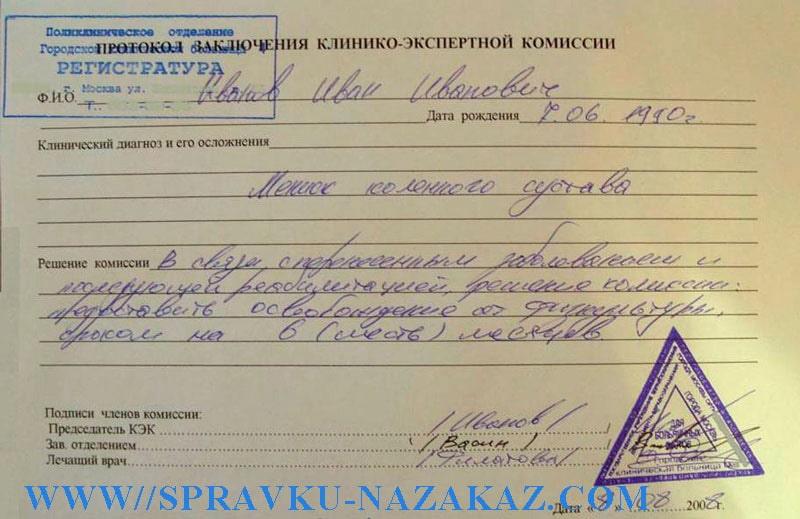 Поликлиническое отделение
Городской клинической больницы
ПРОТОКОЛ ЗАКЛЮЧЕНИЯ КЛИНИКО-ЭКСПЕРТНОЙ КОМИССИИ
РЕГИСТРАТУРА
г. Москва ул.
Ф.И.О. Иванов Иван Иванович
Дата рождения 7.06. 1990г.
Клинический диагноз и его осложнения
Мениск коленного сустава
Решение комиссии В связи с перенесенным заболеванием и
последующей реабилитацией, решение комиссии:
предоставить освобождение от физкультуры,
сроком на 6 (шесть) месяцев.
Подписи членов комиссии:
Председатель КЭК /Иванов/
Зав. отделением (Васин)
Лечащий врач /Филатова/
ГОРОДА МОСКВЫ
ДЛЯ
БОЛЬНИЧНЫХ
ЛИСТОВ
Городская
клиническая больница
WWW//SPRAVKU-NAZAKAZ.COM
Дата «8» 08 2008г.